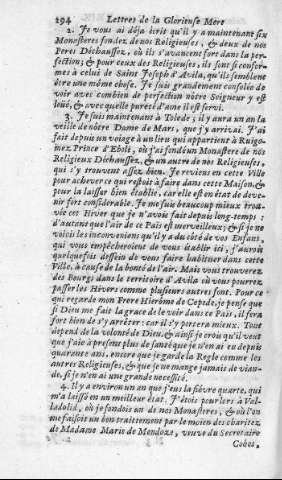 294 Lettres de la Glorieuse Mere
2. Je vous ai déja écrit qu'il y a maintenant six
Monasteres fondez de nos Religieuses, & deux de nos
Peres Déchaussez, où ils s'avancent fort dans la per-
fection; & pour ceux des Religieuses, ils sont si confor-
mes à celui de Saint Joseph d'Avila, qu'ils semblent
être une même chose. Je suis grandement consolée de
voir avec combien de perfection nôtre Seigneur y est
loüé, & avec quelle pureté d'ame il est servi.
3. Je suis maintenant à Tolede; il y aura un an la
veille de nôtre Dame de Mars, que j'y arrivai. J'ai
fait depuis un voiage à un lieu qui appartient à Ruigo-
mez Prince d'Eboli, où j'ai fondé un Monastere de nos
Religieux Déchaussez, & un autre de nos Religieuses,
qui s'y trouvent assez bien. Je reviens en cette Ville
pour achever ce qui restoit à faire dans cette Maison, &
pour la laisser bien établie, car elle est en état de deve-
nir fort considerable. Je me suis beaucoup mieux trou-
vée cet Hiver que je n'avois fait depuis long-temps:
d'autant que l'air de ce Païs est merveilleux; & si je ne
voiois les inconveniens qu'il y a du côté de vos Enfans,
qui vous empêcheroient de vous établir ici, j'aurois
quelquefois dessein de vous faire habituer dans cette
Ville, à cause de la bonté de l'air. Mais vous trouverez
des Bourgs dans le territoire d'Avila où vous pourrez
passer les Hivers comme plusieurs autres font. Pour ce
qui regarde mon Frere Hierôme de Cepede, je pense que
si Dieu me fait la grace de le voir dans ce Païs, il fera
fort bien de s'y arrêter: car il s'y portera mieux. Tout
depend de la volonté de Dieu, & ainsi je croi qu'il veut
que j'aie à present plus de santé que je n'en ai eu depuis
quarante ans, encore que je garde la Regle comme les
autres Religieuses, & que je ne mange jamais de vian-
de, si je n'en ai une grande necessité.
4. Il y a environ un an que j'eus la fiévre quarte, qui
m'a laissé en un meilleur état. J'étois pour lors à Val-
ladolid, où je fondois un de nos Monasteres, & où l'on
me faisoit un bon traittement par le moien des charitez
de Madame Marie de Mendoze, veuve du Secretaire
Cobos,